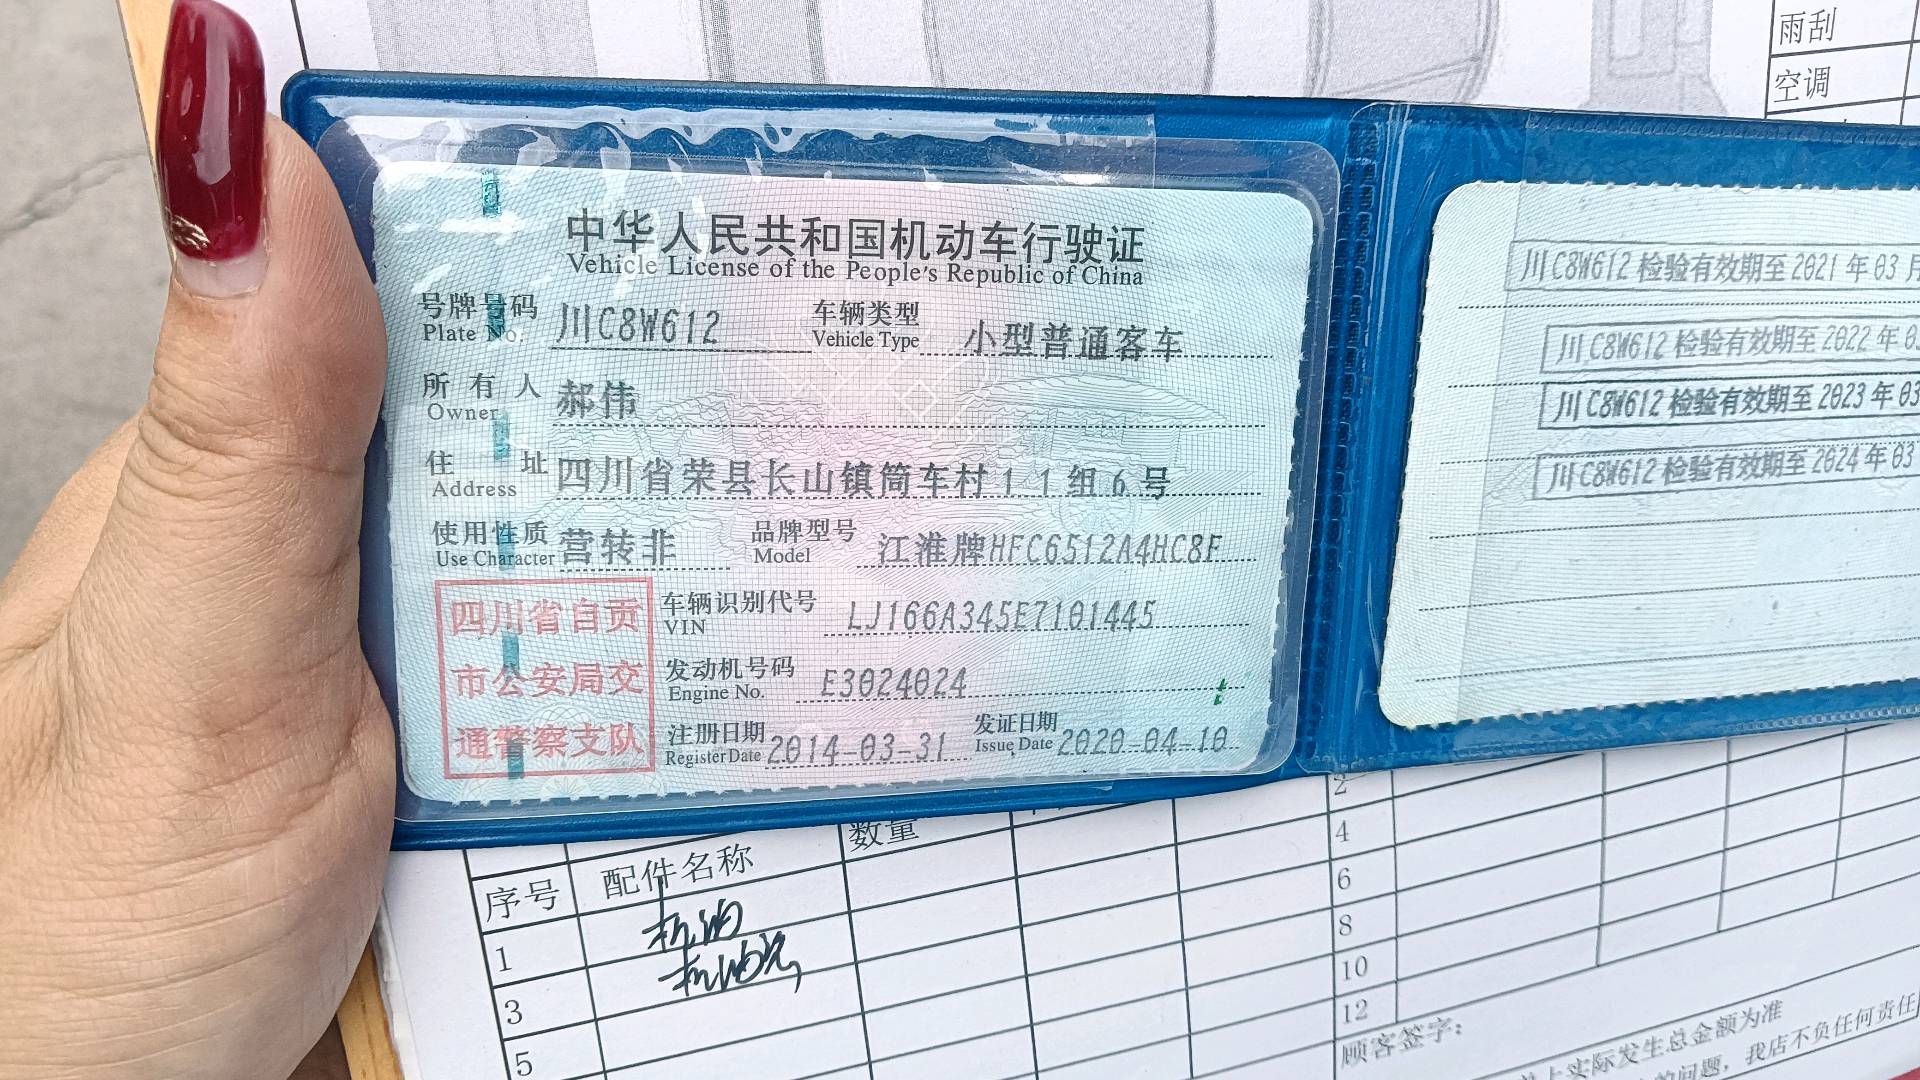 雨刮
空调
中华人民共和国机动车行驶证
Vehicle License of the People's Republic of China
号牌号码 川C8W612 车辆类型 小型普通客车
Plate No. Vehicle Type
所有人 郝伟
Owner
住址 四川省荣县长山镇筒车村11组6号
Address
使用性质 营转非 品牌型号 江淮牌HFC6512A4HC8F
Use Character Model
四川省自贡
市公安局交
通警察支队
车辆识别代号 LJ166A345E7101445
VIN
发动机号码 E3024024
Engine No.
注册日期 2014-03-31 发证日期 2020-04-10
Register Date Issue Date
川C8W612 检验有效期至 2021 年 03 月
川C8W612 检验有效期至 2022 年 03
川C8W612 检验有效期至 2023 年 03
川C8W612 检验有效期至 2024 年 03
序号 配件名称 数量
1 机油
机油
3
5
2
4
6
8
10
12
顾客签字：
上实际发生总金额为准
的问题，我店不负任何责任